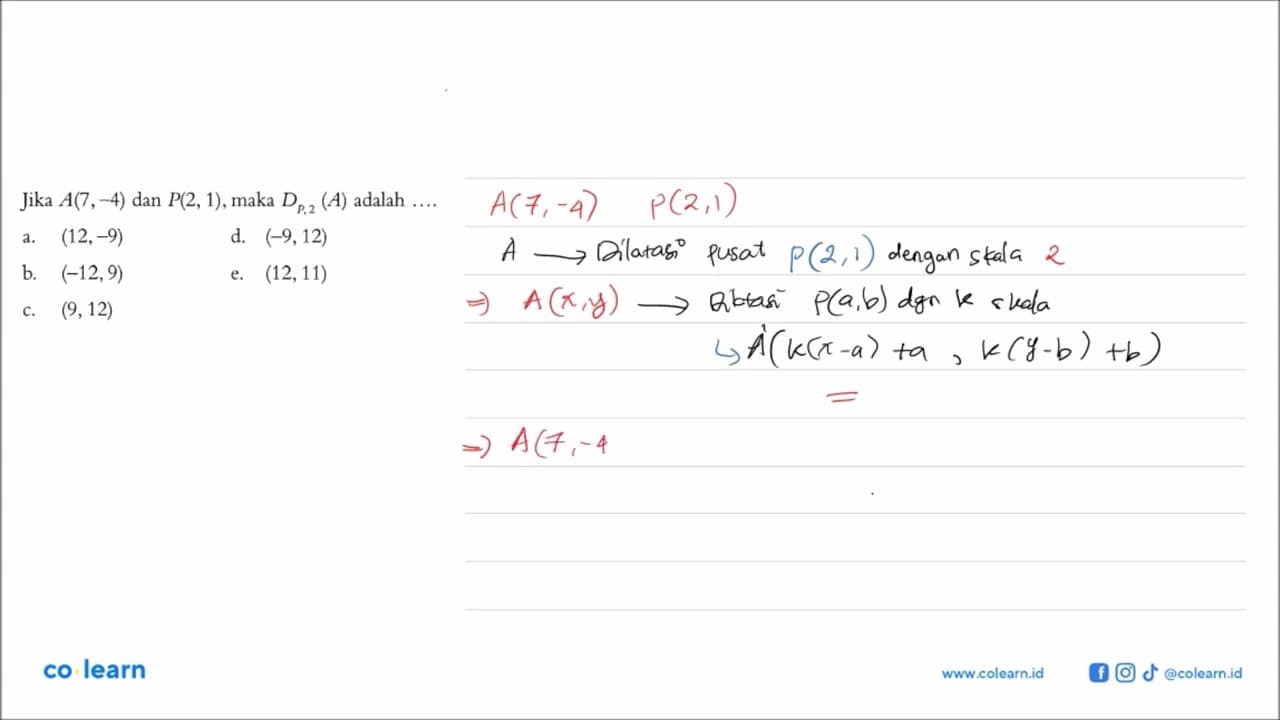 Jika A(7, –4) dan P(2, 1), maka D_{P,2} (A) adalah ….
a. (12, –9)
b. (–12, 9)
c. (9, 12)
d. (–9, 12)
e. (12, 11)
A(7,-4) P(2,1)
A → Dilatasi pusat P(2,1) dengan skala 2
⇒ A(x,y) → Dilatasi P(a,b) dgn k skala
↳ A'(k(x-a) +a , k(y-b) +b)
=
⇒ A(7,-4
co learn
www.colearn.id
@colearn.id